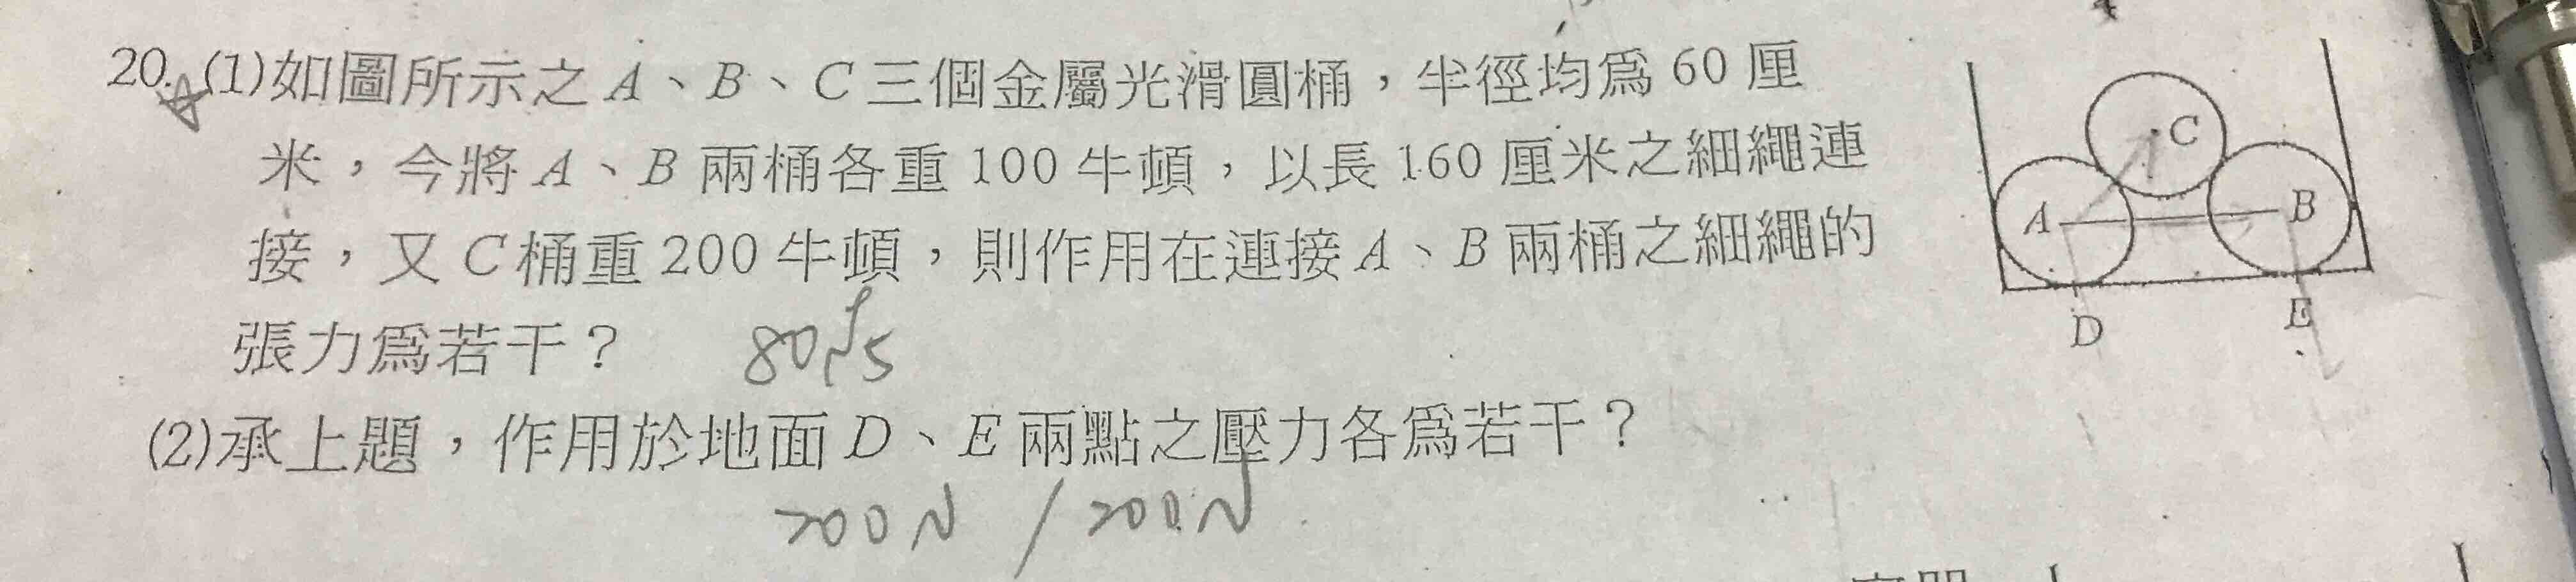 20.☆(1)如圖所示之A、B、C三個金屬光滑圓桶，半徑均爲60厘
米，今將A、B兩桶各重100牛頓，以長160厘米之細繩連
接，又C桶重200牛頓，則作用在連接A、B兩桶之細繩的
張力爲若干？ 80√5
(2)承上題，作用於地面D、E兩點之壓力各爲若干？
200N / 200N
C
A
B
D
E